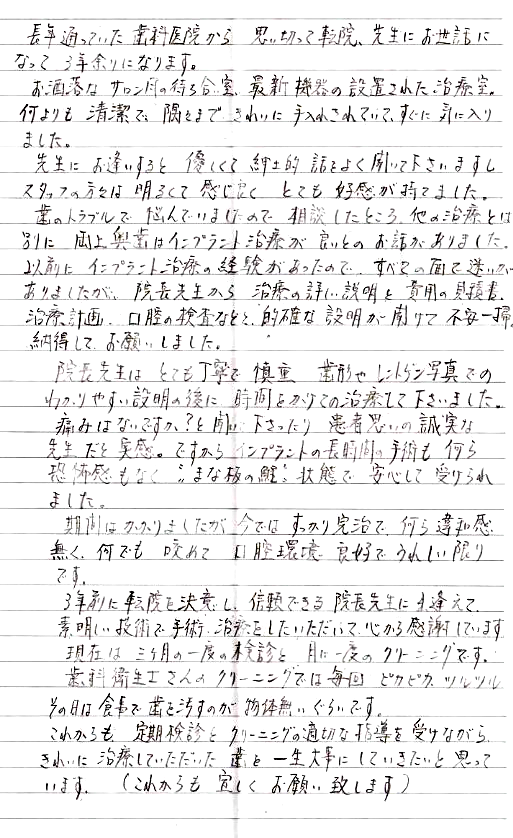 長年通っていた歯科医院から 思い切って転院、先生にお世話に
なって 3年余りになります。
お洒落な サロン風の待ち合室、最新機器の設置された治療室。
何よりも 清潔で、隅々まで きれいに 手入れされていて、すぐに 気に入り
ました。
先生に お逢いすると 優しくて 紳士的 話をよく聞いて下さいますし
スタッフの方々は 明るくて 感じ良く とても 好感が持てました。
歯のトラブルで 悩んでいましたので 相談したところ、他の治療とは
別に 両上奥歯はインプラント治療が 良いとの お話がありました。
以前に インプラント治療の経験があったので、すべての面で迷いが
ありましたが、院長先生から 治療の詳しい説明と 費用の見積書、
治療計画、口腔の検査などと、的確な 説明が聞けて 不安一掃。
納得して、お願いしました。
院長先生は とても丁寧で 慎重 歯形や レントゲン写真での
わかりやすい説明の後に 時間をかけての治療して下さいました。
痛みはないですか？と聞いて下さったり 患者思いの誠実な
先生だと実感。ですから インプラントの長時間の手術も 何ら
恐怖感もなく “まな板の鯉” 状態で 安心して 受けられ
ました。
期間はかかりましたが 今では すっかり完治で、何ら違和感
無く、何でも 咬めて 口腔環境 良好で うれしい限り
です。
3年前に転院を決意し、信頼できる 院長先生に 出逢えて、
素晴しい技術で手術、治療をしていただいて、心から感謝しています
現在は 三ヶ月の一度の検診と 月に一度の クリーニングです。
歯科衛生士さんの クリーニングでは毎回 ピカピカ、ツルツル
その日は食事で歯を汚すのが 勿体無いぐらいです。
これからも 定期検診と クリーニングの適切な指導を受けながら、
きれいに治療していただいた 歯を 一生大事にしていきたいと思って
います。 （これからも 宜しく お願い致します）